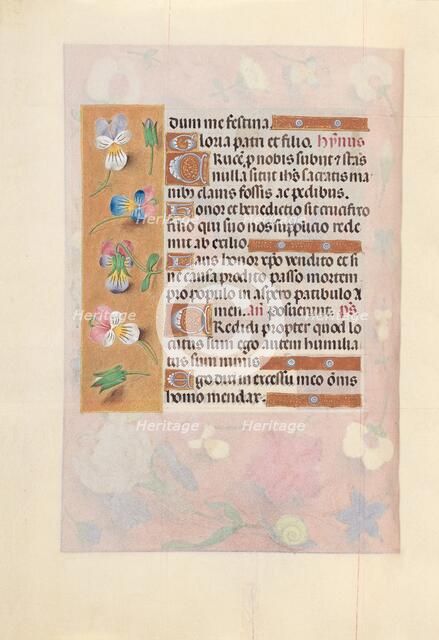 dum me festina.
Gloria patri et filio. Hymnus
Cruce p nobis subiit & stas
nulla sitiit ihs sacratis ma
nib clavis fossis ac pedibus.
Honor et benedictio sit crucifixo
filio qui suo nos supplicio rede
mit ab exilio
Laus honor xpo vendito et si
ne causa prodito passo mortem
pro populo in aspero patibulo A
men. an Posuerunt. Ps
Credidi propter quod lo
cutus sum ego autem humilia
tus sum nimis
Ego dixi in excessu meo ois
homo mendax.
Heritage Heritage
Heritage Heritage
Heritage Heritage